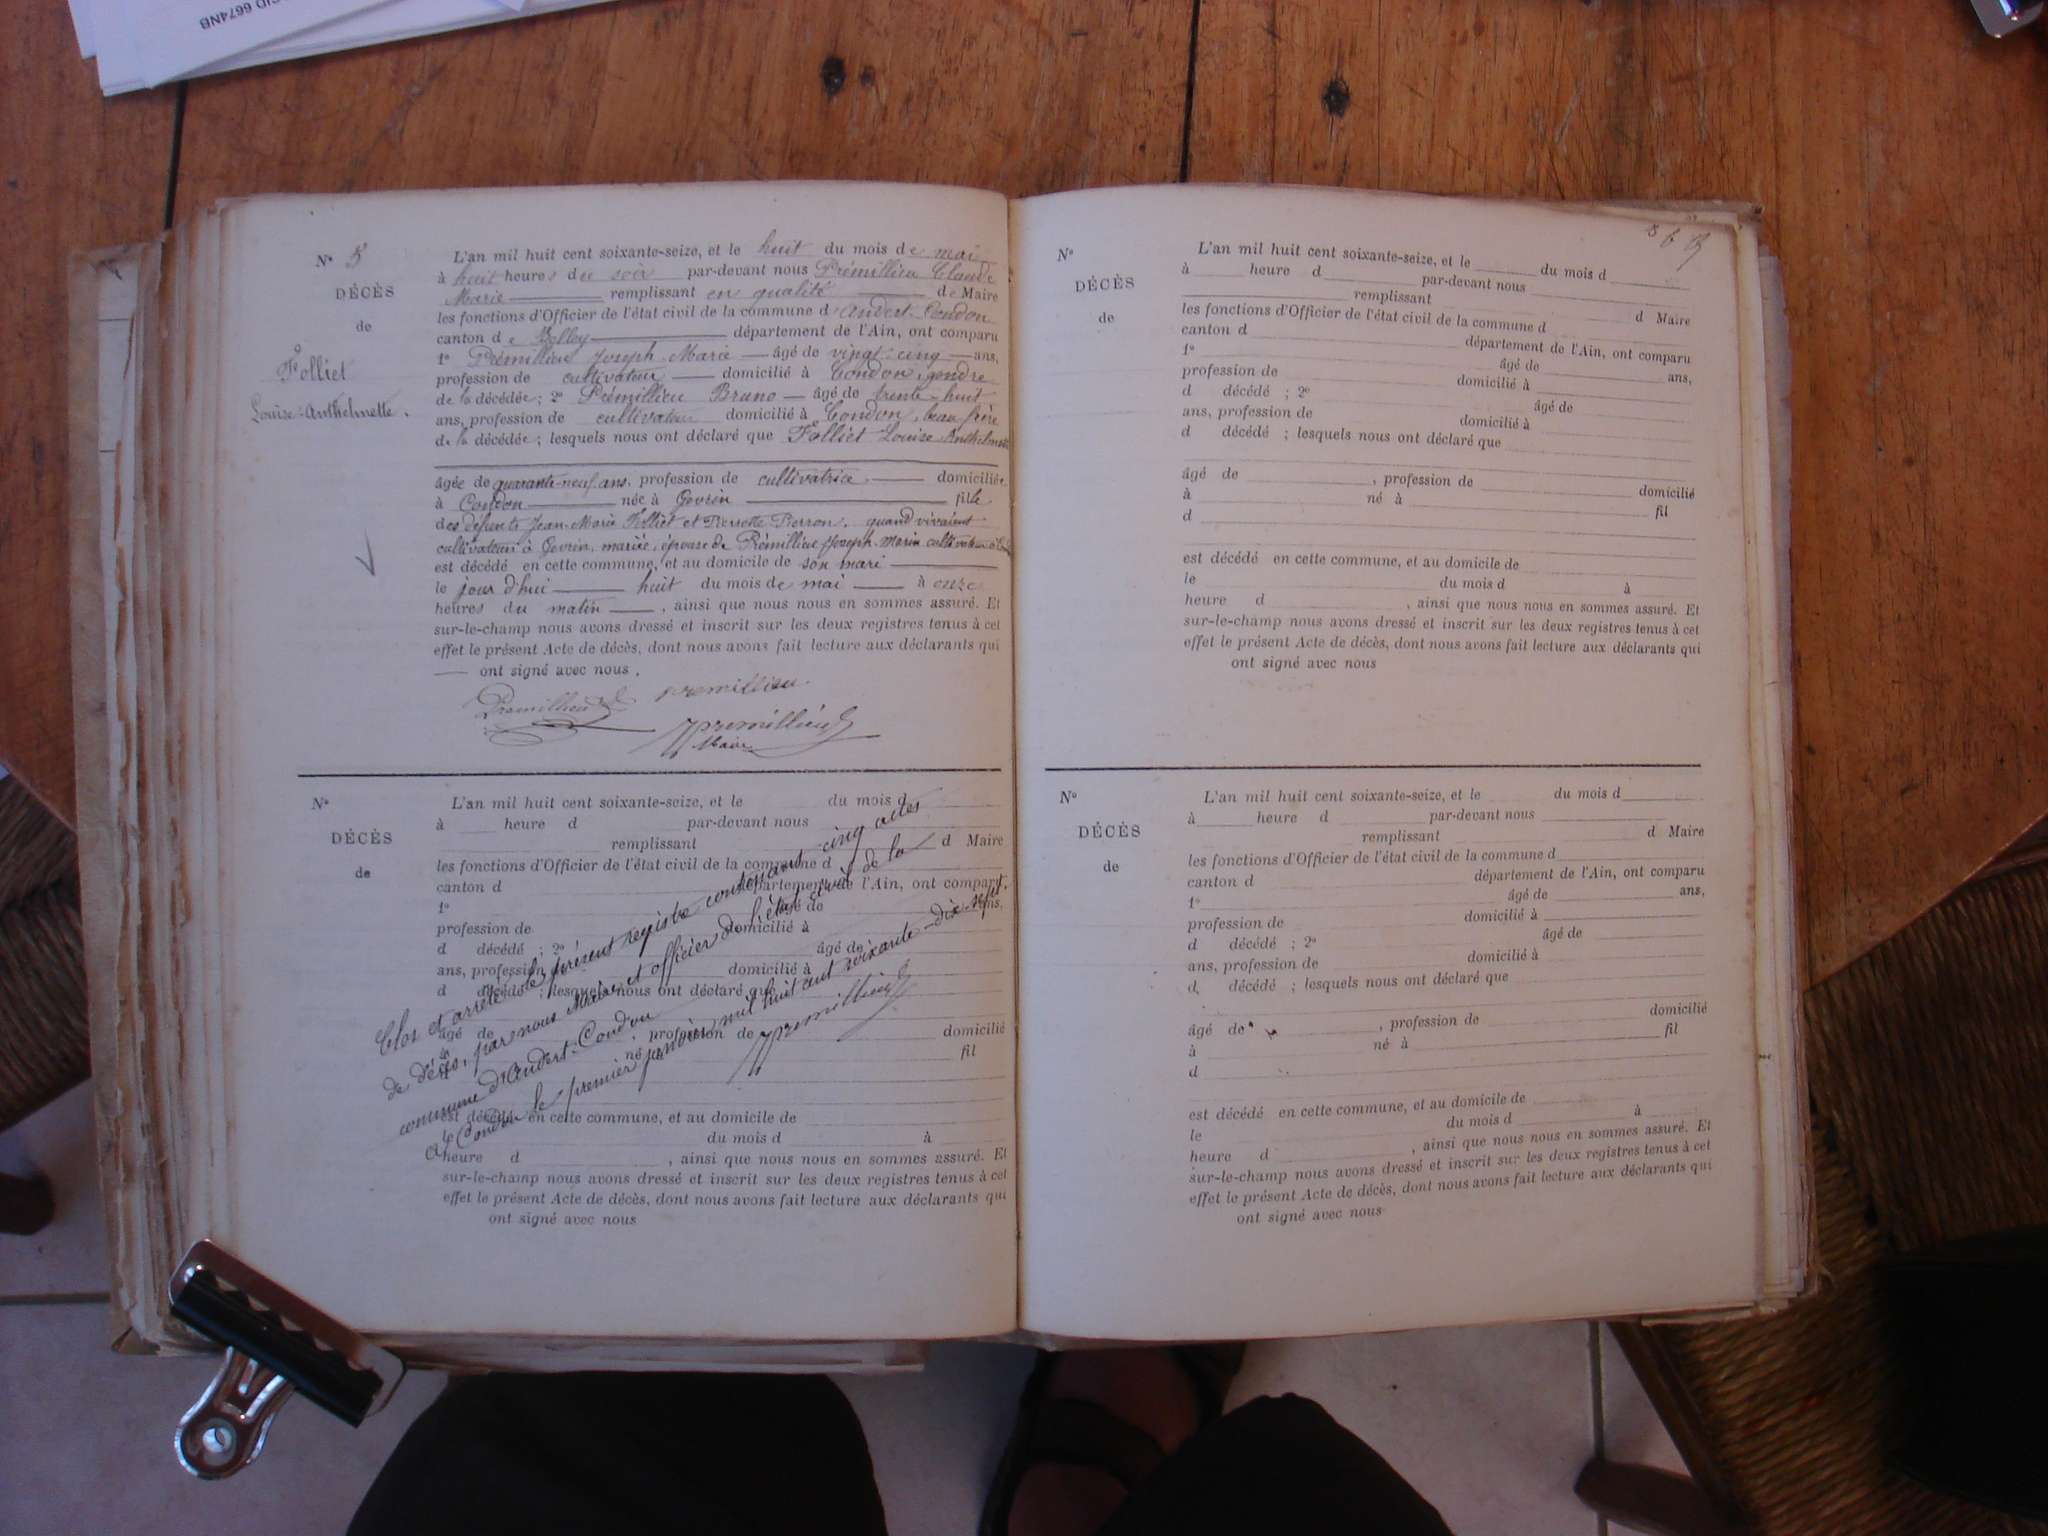 6674NB
N° 5
DÉCÈS
de
Folliet
Louise-Anthelmette.
L'an mil huit cent soixante-seize, et le huit du mois de mai
à huit heures du soir par-devant nous Prémillieu Claude
Marie remplissant en qualité de Maire
les fonctions d'Officier de l'état civil de la commune d'Andert-Condon
canton de Belley département de l'Ain, ont comparu
1° Prémillieu Joseph Marie âgé de vingt-cinq ans,
profession de cultivateur domicilié à Condon, gendre
de la décédée ; 2° Prémillieu Bruno âgé de trente-huit
ans, profession de cultivateur domicilié à Condon, beau frère
de la décédée ; lesquels nous ont déclaré que Folliet Louise Anthelmette
âgée de quarante-neuf ans, profession de cultivatrice domiciliée
à Condon née à Gevrin fille
des défunts Jean-Marie Folliet et Pierrette Pierron, quand vivaient
cultivateurs à Gevrin, mariée, épouse de Prémillieu Joseph-Marie cultivateur à
est décédé en cette commune, et au domicile de son mari
le jour d'hui huit du mois de mai à onze
heures du matin , ainsi que nous nous en sommes assuré. Et
sur-le-champ nous avons dressé et inscrit sur les deux registres tenus à cet
effet le présent Acte de décès, dont nous avons fait lecture aux déclarants qui
ont signé avec nous.
Premillieu premillieu
premillieu
Maire
N°
DÉCÈS
de
L'an mil huit cent soixante-seize, et le du mois d
à heure d par-devant nous
remplissant d Maire
les fonctions d'Officier de l'état civil de la commune d
canton d département de l'Ain, ont comparu
1° âgé de ans,
profession de domicilié à
d décédé ; 2° âgé de
ans, profession de domicilié à
d décédé ; lesquels nous ont déclaré que
âgé de , profession de domicilié
à né à fil
d
est décédé en cette commune, et au domicile de
le du mois d à
heure d , ainsi que nous nous en sommes assuré. Et
sur-le-champ nous avons dressé et inscrit sur les deux registres tenus à cet
effet le présent Acte de décès, dont nous avons fait lecture aux déclarants qui
ont signé avec nous
Clos et arrêté le présent registre contenant cinq actes
de décès, par nous Maire et officier de l'état civil de la
commune d'Andert-Condon
A Condon le premier janvier mil huit cent soixante-dix-sept.
premillieu
N°
DÉCÈS
de
L'an mil huit cent soixante-seize, et le du mois d
à heure d par-devant nous
remplissant d Maire
les fonctions d'Officier de l'état civil de la commune d
canton d département de l'Ain, ont comparu
1° âgé de ans,
profession de domicilié à
d décédé ; 2° âgé de
ans, profession de domicilié à
d décédé ; lesquels nous ont déclaré que
âgé de , profession de domicilié
à né à fil
d
est décédé en cette commune, et au domicile de
le du mois d à
heure d , ainsi que nous nous en sommes assuré. Et
sur-le-champ nous avons dressé et inscrit sur les deux registres tenus à cet
effet le présent Acte de décès, dont nous avons fait lecture aux déclarants qui
ont signé avec nous
N°
DÉCÈS
de
L'an mil huit cent soixante-seize, et le du mois d
à heure d par-devant nous
remplissant d Maire
les fonctions d'Officier de l'état civil de la commune d
canton d département de l'Ain, ont comparu
1° âgé de ans,
profession de domicilié à
d décédé ; 2° âgé de
ans, profession de domicilié à
d décédé ; lesquels nous ont déclaré que
âgé de , profession de domicilié
à né à fil
d
est décédé en cette commune, et au domicile de
le du mois d à
heure d , ainsi que nous nous en sommes assuré. Et
sur-le-champ nous avons dressé et inscrit sur les deux registres tenus à cet
effet le présent Acte de décès, dont nous avons fait lecture aux déclarants qui
ont signé avec nous